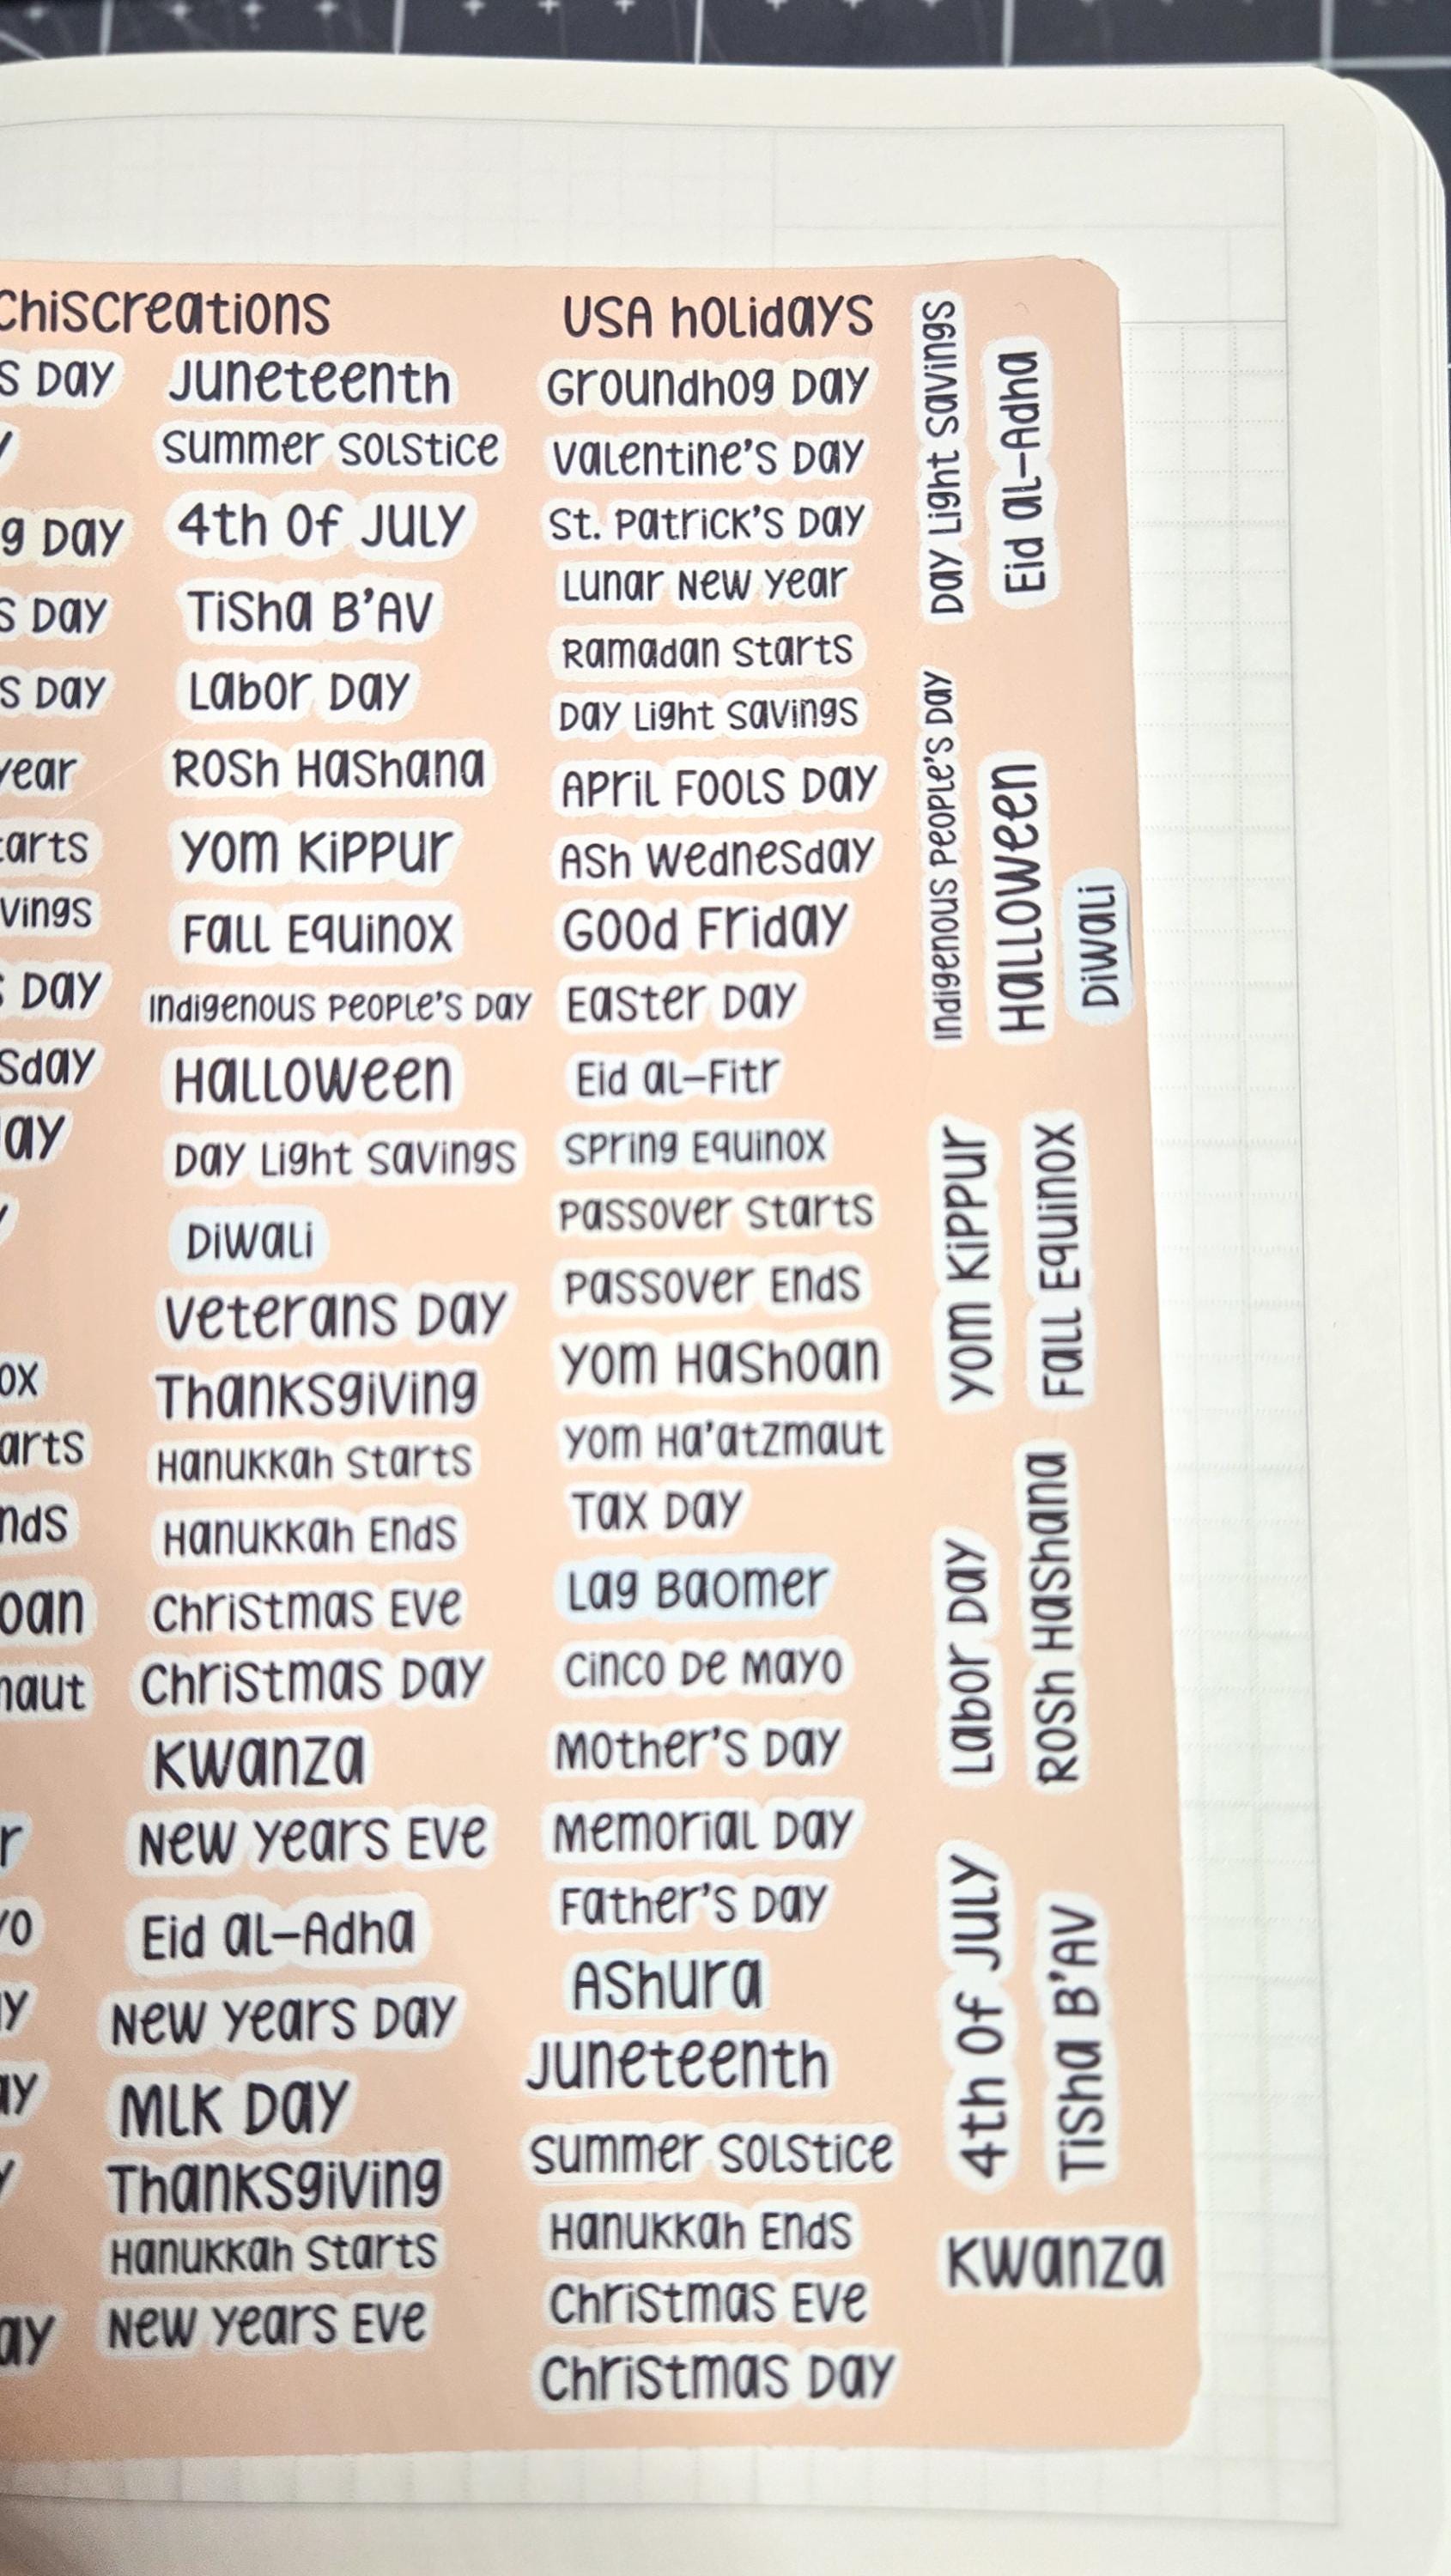 chiscreations
USA Holidays
s Day
g Day
s Day
s Day
year
arts
vings
s Day
sday
ay
ox
arts
nds
oan
maut
r
yo
y
ay
y
ay
Juneteenth
Summer Solstice
4th of July
Tisha B'Av
Labor Day
Rosh Hashana
Yom Kippur
Fall Equinox
Indigenous People's Day
Halloween
Day Light Savings
Diwali
Veterans Day
Thanksgiving
Hanukkah Starts
Hanukkah Ends
Christmas Eve
Christmas Day
Kwanza
New Years Eve
Eid al-Adha
New Years Day
MLK Day
Thanksgiving
Hanukkah Starts
New Years Eve
Groundhog Day
Valentine's Day
St. Patrick's Day
Lunar New Year
Ramadan Starts
Day Light Savings
April Fools Day
Ash Wednesday
Good Friday
Easter Day
Eid al-Fitr
Spring Equinox
Passover Starts
Passover Ends
Yom Hashoan
Yom Ha'atzmaut
Tax Day
Lag Baomer
Cinco De Mayo
Mother's Day
Memorial Day
Father's Day
Ashura
Juneteenth
Summer Solstice
Hanukkah Ends
Christmas Eve
Christmas Day
Day Light Savings
Eid al-Adha
Indigenous People's Day
Halloween
Diwali
Yom Kippur
Fall Equinox
Labor Day
Rosh Hashana
4th of July
Tisha B'Av
Kwanza